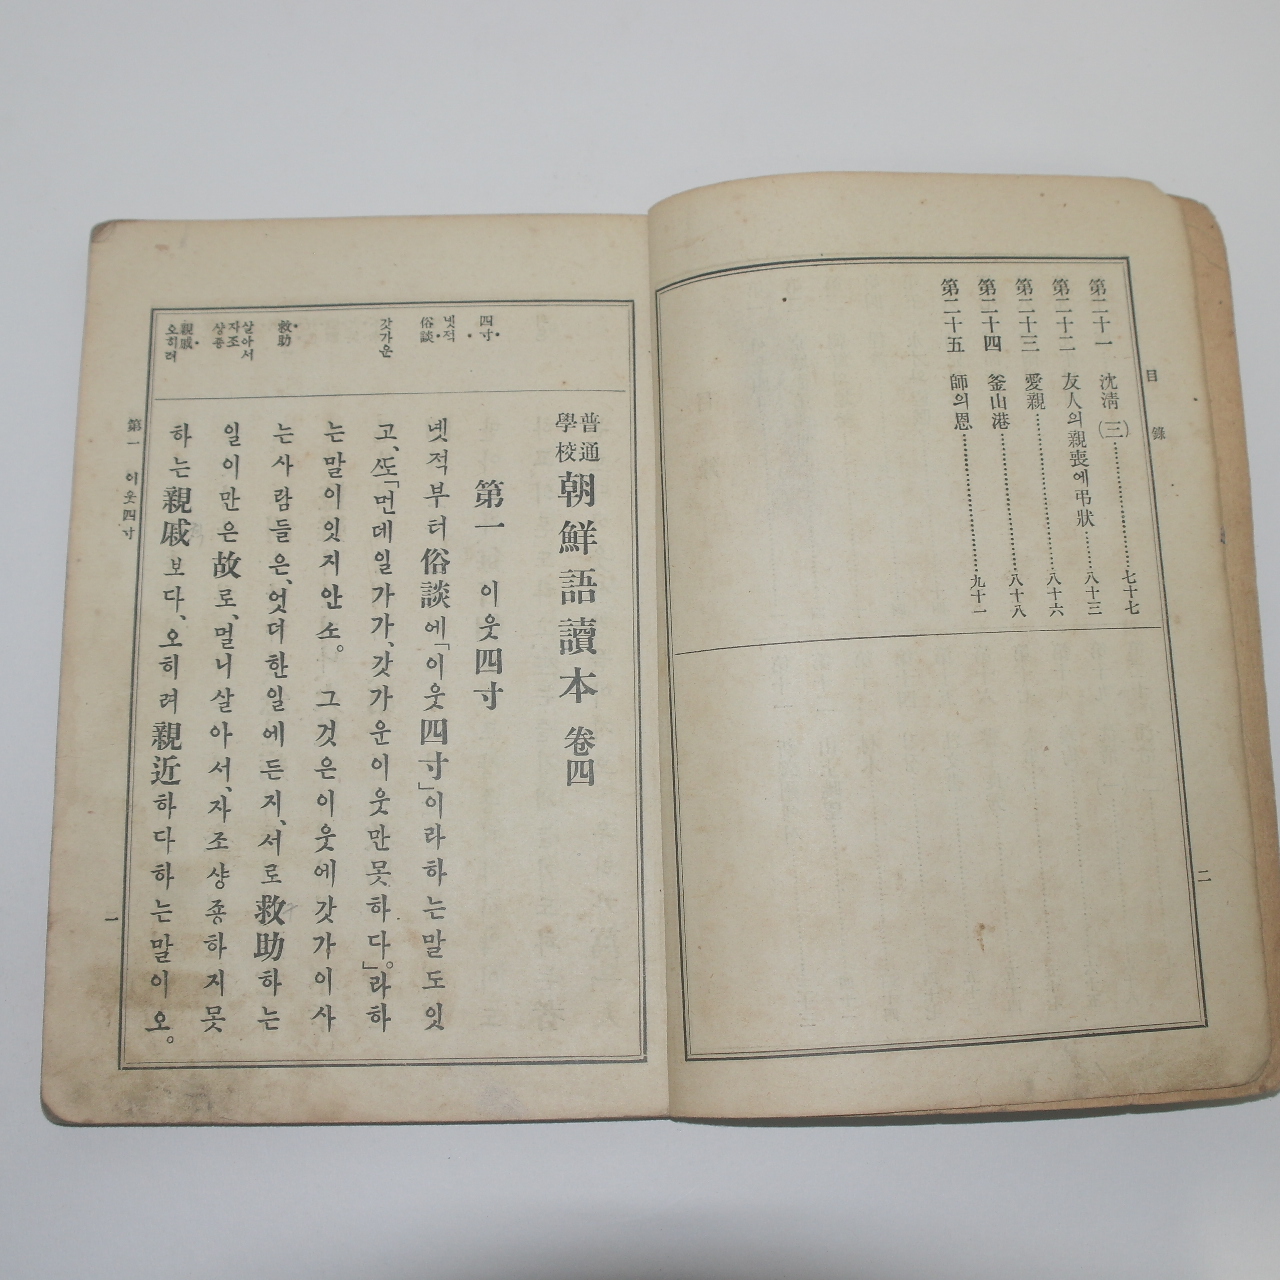 目錄
第二十一 沈淸(三)……七十七
第二十二 友人의親喪에弔狀……八十三
第二十三 愛親……八十六
第二十四 釜山港……八十八
第二十五 師의恩……九十一
二
普通學校 朝鮮語讀本 卷四
第一 이웃四寸
넷적부터俗談에「이웃四寸」이라하는말도잇
고、ᄯᅩ「먼데일가가、갓가운이웃만못하다。」라하
는말이잇지안소。그것은이웃에갓가이사
는사람들은、엇더한일에든지、서로救助하는
일이만은故로、멀니살아서、자조샹죵하지못
하는親戚보다、오히려親近하다하는말이오。
四寸
넷적
俗談
갓가운
救助
살아서
자조
샹죵
親戚
오히려
第一 이웃四寸
一